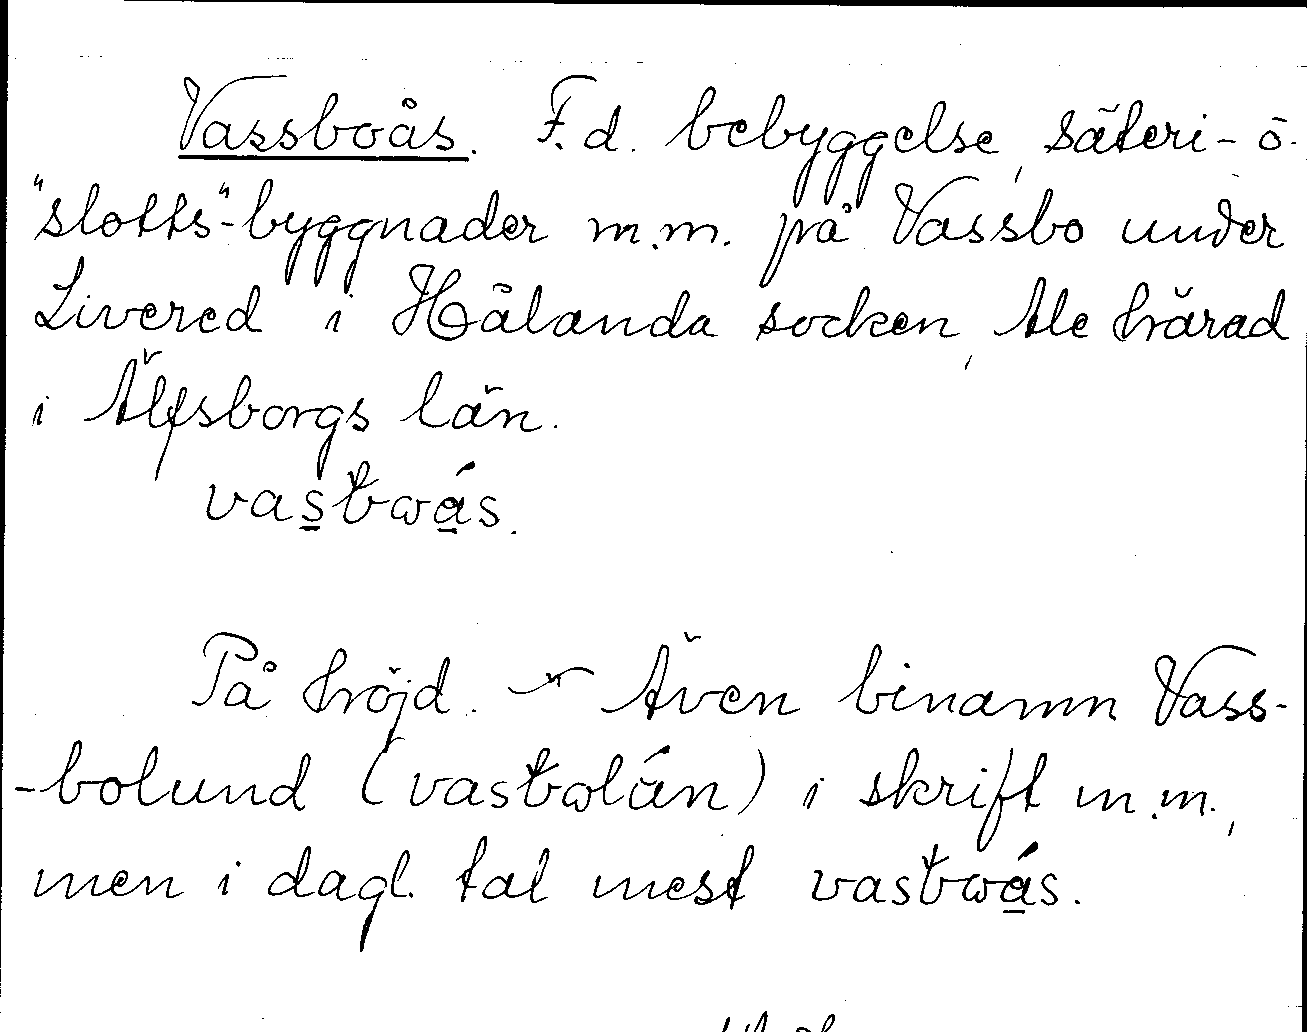 Vassboås. F.d. bebyggelse, säteri- o.
"slotts"-byggnader m.m. på Vassbo under
Livered i Hålanda socken, Ale härad
i Älfsborgs län.
vasbwås.
På höjd. Även binamn Vass-
-bolund (vasbwlún) i skrift m.m.,
men i dagl. tal mest vasbwås.